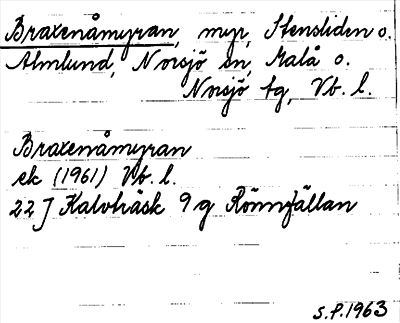 Braxenåmyran, myr, Stensliden o.
Almlund, Norsjö sn, Malå o.
Norsjö tg, Vb. l.
Braxenåmyran
ek (1961) Vb. l.
22 J Kalvträsk 9 g Rönnfällan
S.P.1963